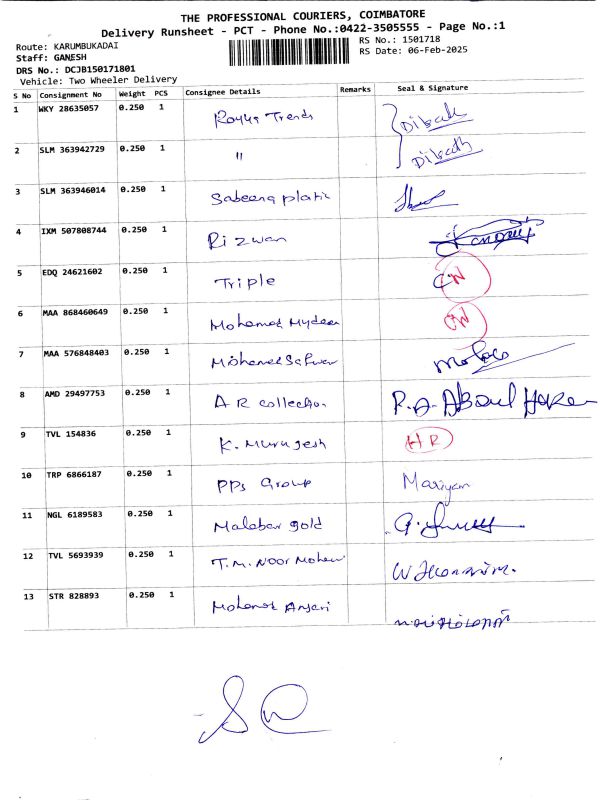 THE PROFESSIONAL COURIERS, COIMBATORE
Delivery Runsheet - PCT - Phone No.:0422-3505555 - Page No.:1
Route: KARUMBUKADAI
RS No.: 1501718
Staff: GANESH
RS Date: 06-Feb-2025
DRS No.: DCJB150171801
Vehicle: Two Wheeler Delivery
S No Consignment No Weight PCS Consignee Details Remarks Seal & Signature
1 WKY 28635057 0.250 1 Trends
2 SLM 363942729 0.250 1 "
3 SLM 363946014 0.250 1 Sabeena
4 IXM 507808744 0.250 1 Rizwan
5 EDQ 24621602 0.250 1 Triple CW
6 MAA 868460649 0.250 1 Mohamed CW
7 MAA 576848403 0.250 1
8 AMD 29497753 0.250 1 A R collection R.A. Abdul
9 TVL 154836 0.250 1 K. Murugesh HR
10 TRP 6866187 0.250 1 PPs Group Mariyam
11 NGL 6189583 0.250 1 Malabar gold
12 TVL 5693939 0.250 1 T.M. Noor
13 STR 828893 0.250 1 Ansari